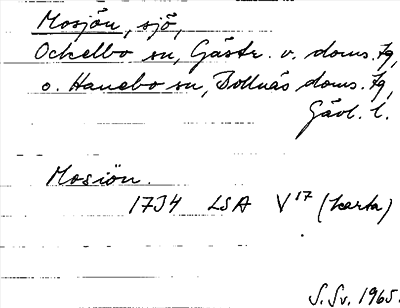 Mosjön, sjö,
Ockelbo sn, Gästr. v. doms. tg,
o. Hanebo sn, Bollnäs doms. tg,
Gävl. l.
Mosiön.
1734 LSA V17 (karta)
S. Sv. 1965.